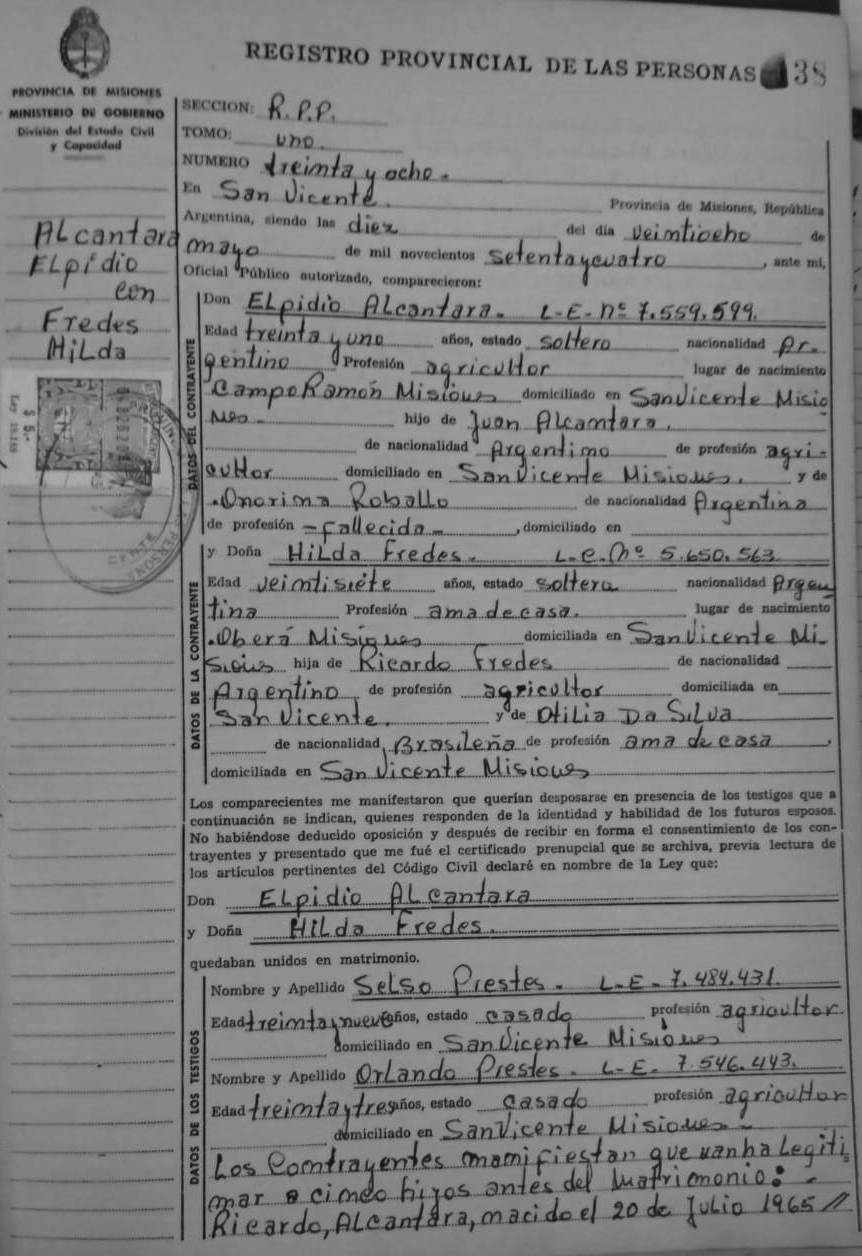 REGISTRO PROVINCIAL DE LAS PERSONAS 38
PROVINCIA DE MISIONES
MINISTERIO DE GOBIERNO
División del Estado Civil
y Capacidad
SECCION: R.P.P.
TOMO: uno.
NUMERO treinta y ocho.
En San Vicente. Provincia de Misiones, República
Argentina, siendo las diez del día veintiocho de
mayo de mil novecientos setentaycuatro, ante mi,
Oficial Público autorizado, comparecieron:
ALcantara
ELpidio
con
Fredes
HiLda
DATOS DEL CONTRAYENTE
Don ELpidio ALcantara. L-E-nº 7.559.599.
Edad treinta y uno años, estado soltero nacionalidad Ar-
gentino Profesión agricultor lugar de nacimiento
Campo Ramón Misiones domiciliado en San Vicente Misio
nes- hijo de Juan Alcantara,
de nacionalidad Argentino de profesión agri-
cultor domiciliado en San Vicente Misiones, y de
Onorina Roballo de nacionalidad Argentina
de profesión -fallecida-, domiciliado en
y Doña HiLda Fredes. L.e.nº 5.650.563
DATOS DE LA CONTRAYENTE
Edad veintisiete años, estado soltera nacionalidad Argen
tina Profesión ama de casa. lugar de nacimiento
Oberá Misiones domiciliada en San Vicente Mi-
siones hija de Ricardo Fredes de nacionalidad
Argentino de profesión agricultor domiciliada en
San Vicente. y de Otilia Da SiLva
de nacionalidad BrasiLeña de profesión ama de casa,
domiciliada en San Vicente Misiones
Los comparecientes me manifestaron que querían desposarse en presencia de los testigos que a
continuación se indican, quienes responden de la identidad y habilidad de los futuros esposos.
No habiéndose deducido oposición y después de recibir en forma el consentimiento de los con-
trayentes y presentado que me fué el certificado prenupcial que se archiva, previa lectura de
los artículos pertinentes del Código Civil declaré en nombre de la Ley que:
Don ELpidio ALcantara
y Doña HiLda Fredes.
quedaban unidos en matrimonio.
DATOS DE LOS TESTIGOS
Nombre y Apellido SeLso Prestes. L-E- 7.484.431.
Edad treintaynueve años, estado casado profesión agricultor
domiciliado en San Vicente Misiones
Nombre y Apellido OrLando Prestes. L-E- 7.546.443.
Edad treintaytres años, estado casado profesión agricultor
domiciliado en San Vicente Misiones-
Los Contrayentes manifiestan que van ha Legiti
mar a cinco hijos antes del matrimonio:-
Ricardo, ALcantara, nacido el 20 de Julio 1965 //